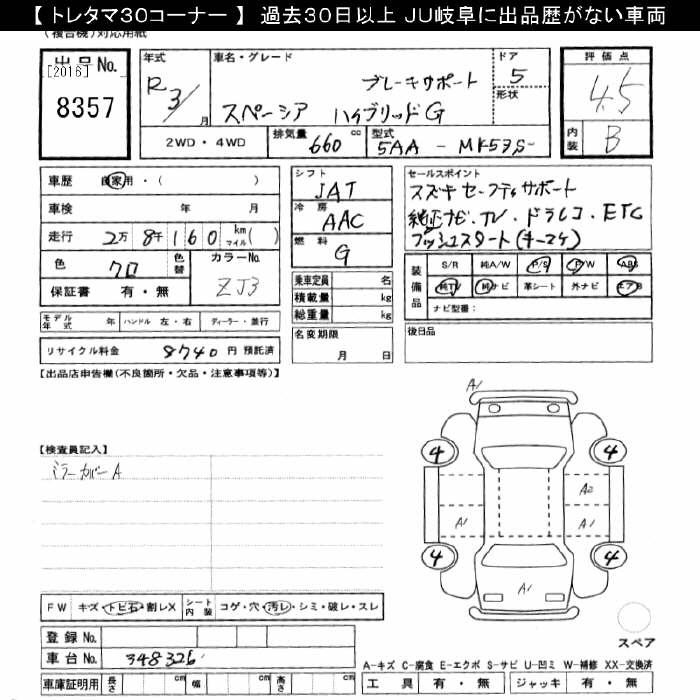 【 トレタマ30コーナー 】 過去30日以上 JU岐阜に出品歴がない車両
(複合機)対応用紙
出品No.
[2016]
8357
年式
R3/月
車名・グレード
ブレーキサポート
スペーシア ハイブリッドG
ドア
5
形状
評価点
4.5
内装 B
2WD・4WD
排気量 660 cc
型式 5AA - MK53S-
車歴 自家用・( )
車検 年 月
走行 2万 8千 160 km(マイル)
色 クロ 色替
カラーNo. ZJ3
保証書 有・無
シフト
JAT
冷房
AAC
燃料
G
乗車定員 名
積載量 kg
総重量 kg
セールスポイント
スズキセーフティサポート
純正ナビ.TV.ドラレコ.ETC
プッシュスタート(キー2ケ)
装備品
S/R 純A/W P/S P/W ABS
純TV 純ナビ 革シート 外ナビ エアB
ナビ型番:
モデル年式 年 ハンドル 左・右 ディーラー・並行
名変期限
月 日
後日品
リサイクル料金 8740 円 預託済
【出品店申告機(不良箇所・欠品・注意事項等)】
A1
4 4
A2
A1 A1
4 4
A1
【検査員記入】
ミラーカバーA
FW キズ・トビ石・割レX
シート内装 コゲ・穴・汚レ・シミ・破レ・スレ
登録No.
車台No. 348326
スペア
A-キズ C-腐食 E-エクボ S-サビ U-凹ミ W-補修 XX-交換済
車庫証明用 長さ cm 幅 cm 高さ cm
工具 有・無 ジャッキ 有・無